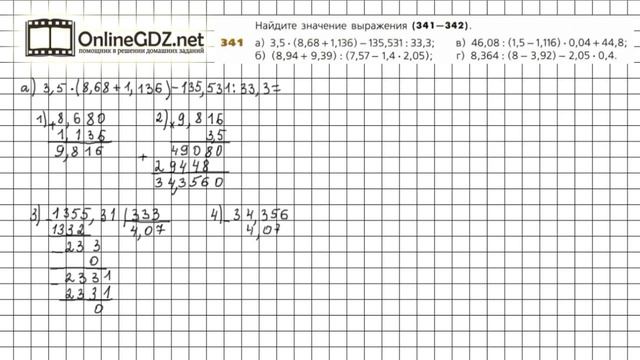 OnlineGDZ.net
ПОМОЩНИК В РЕШЕНИИ ДОМАШНИХ ЗАДАНИЙ
Найдите значение выражения (341—342).
341
а) 3,5 · (8,68 + 1,136) − 135,531 : 33,3;
б) (8,94 + 9,39) : (7,57 − 1,4 · 2,05);
в) 46,08 : (1,5 − 1,116) · 0,04 + 44,8;
г) 8,364 : (8 − 3,92) − 2,05 · 0,4.
а) 3,5 · (8,68 + 1,136) − 135,531 : 33,3 =
1) + 8,680
1,136
9,816
2) × 9,816
3,5
+ 49080
29448
34,3560
3) − 1355,31 | 333
1332 4,07
− 233
0
− 2331
2331
0
4) − 34,356
4,07